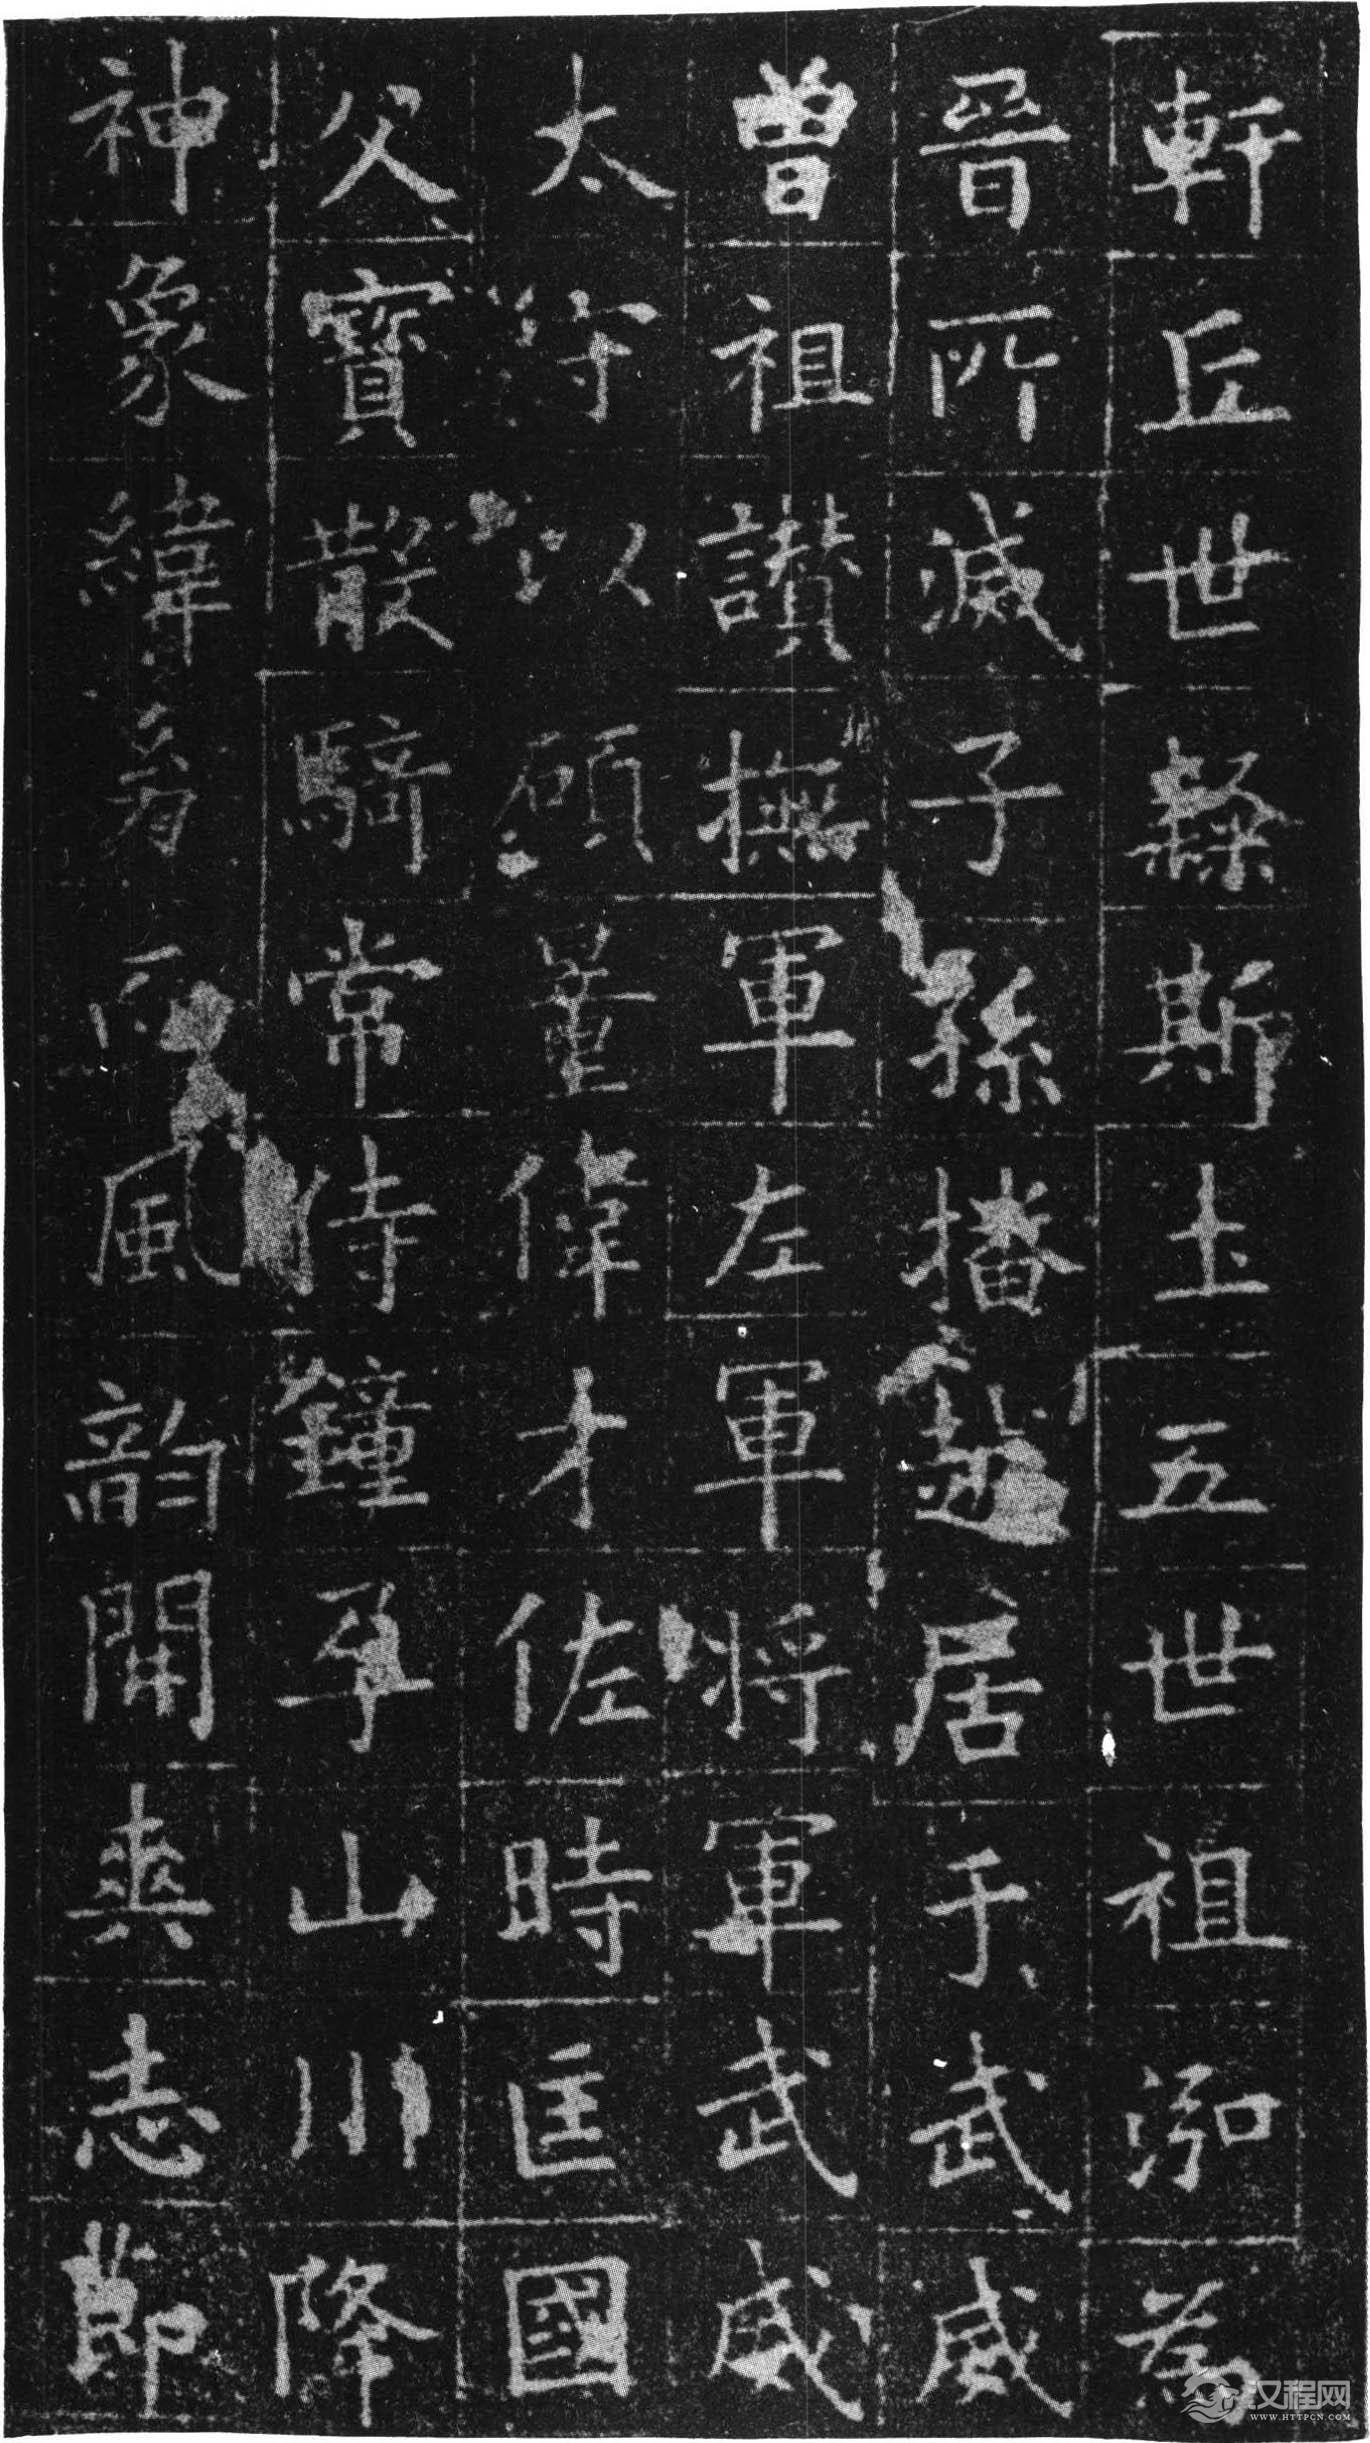 軒丘世隸斯土五世祖泓為
晉所滅子孫播越居于武威
曾祖讃撫軍左軍将軍武威
太守以碩量偉才佐時匡國
父寶散騎常侍鐘孕山川降
神象緯風韵開爽志節
汉程网
WWW.HTTPCN.COM